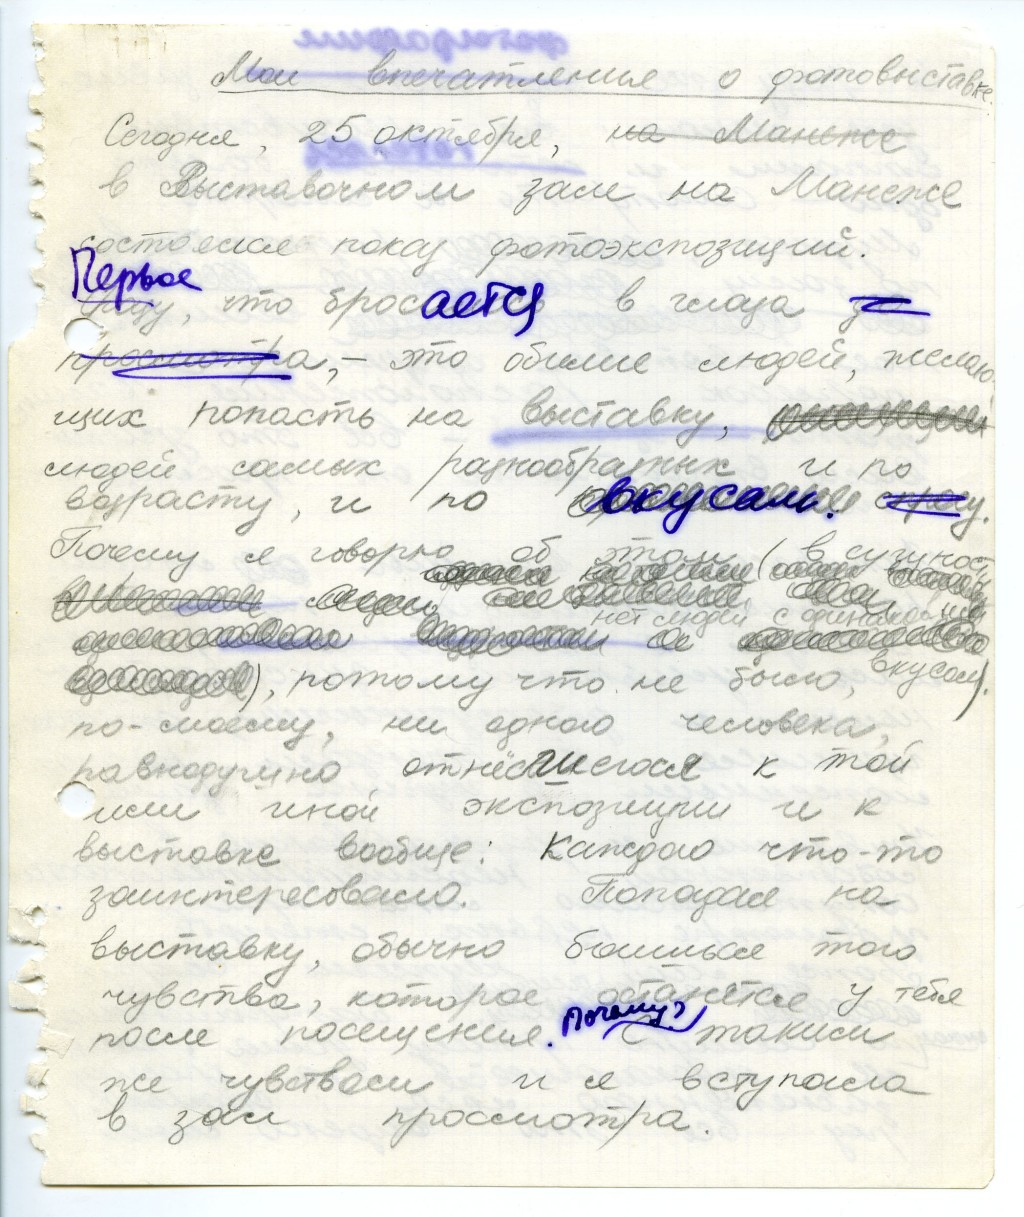 Мои впечатления о фотовыставке.
Сегодня, 25 октября, на Манеже
в Выставочном зале на Манеже
состоялся показ фотоэкспозиций.
Первое
что бросается в глаза
просмотра, – это обилие людей, желаю-
щих попасть на выставку,
людей самых разнообразных и по
возрасту, и по вкусам.
Почему я говорю об этом (в сущности
нет людей с одинаковыми
вкусами).
, потому что не было,
по-моему, ни одного человека,
равнодушно отнёсшегося к той
или иной экспозиции и к
выставке вообще: Каждого что-то
заинтересовало. Попадая на
выставку, обычно боишься того
чувства, которое останется у тебя
Почему?
после посещения. С такими
же чувствами и я вступала
в зал просмотра.